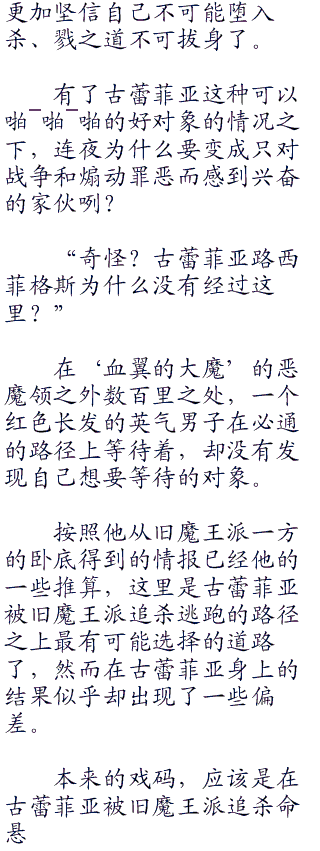 更加坚信自己不可能堕入
杀、戮之道不可拔身了。
有了古蕾菲亚这种可以
啪¯啪¯啪的好对象的情况之
下，连夜为什么要变成只对
战争和煽动罪恶而感到兴奋
的家伙咧？
“奇怪？古蕾菲亚路西
菲格斯为什么没有经过这
里？”
在‘血翼的大魔’的恶
魔领之外数百里之处，一个
红色长发的英气男子在必通
的路径上等待着，却没有发
现自己想要等待的对象。
按照他从旧魔王派一方
的卧底得到的情报已经他的
一些推算，这里是古蕾菲亚
被旧魔王派追杀逃跑的路径
之上最有可能选择的道路
了，然而在古蕾菲亚身上的
结果似乎却出现了一些偏
差。
本来的戏码，应该是在
古蕾菲亚被旧魔王派追杀命
悬